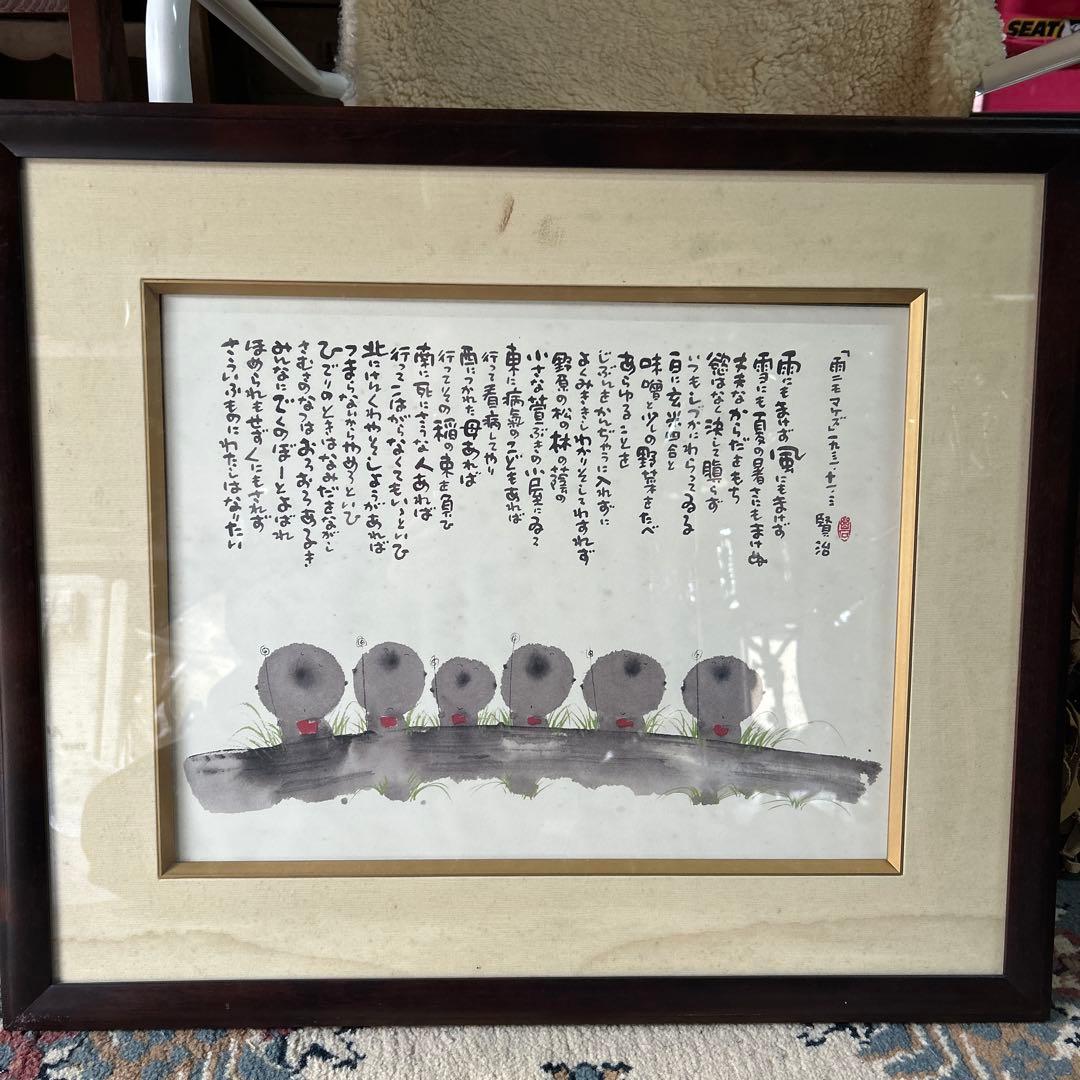 「雨ニモマケズ」一九三一・十一・三
賢治
雨にもまけず風にもまけず
雪にも夏の暑さにもまけぬ
丈夫なからだをもち
慾はなく決して瞋らず
いつもしづかにわらってゐる
一日に玄米四合と
味噌と少しの野菜をたべ
あらゆることを
じぶんをかんぢゃうに入れずに
よくみききしわかりそしてわすれず
野原の松の林の蔭の
小さな萱ぶきの小屋にゐて
東に病氣のこどもあれば
行って看病してやり
西につかれた母あれば
行ってその稲の束を負ひ
南に死にさうな人あれば
行ってこはがらなくてもいゝといひ
北にけんくわやそしょうがあれば
つまらないからやめろといひ
ひでりのときはなみだをながし
さむさのなつはおろおろあるき
みんなにでくのぼーとよばれ
ほめられもせずくにもされず
さういふものにわたしはなりたい
SEAT